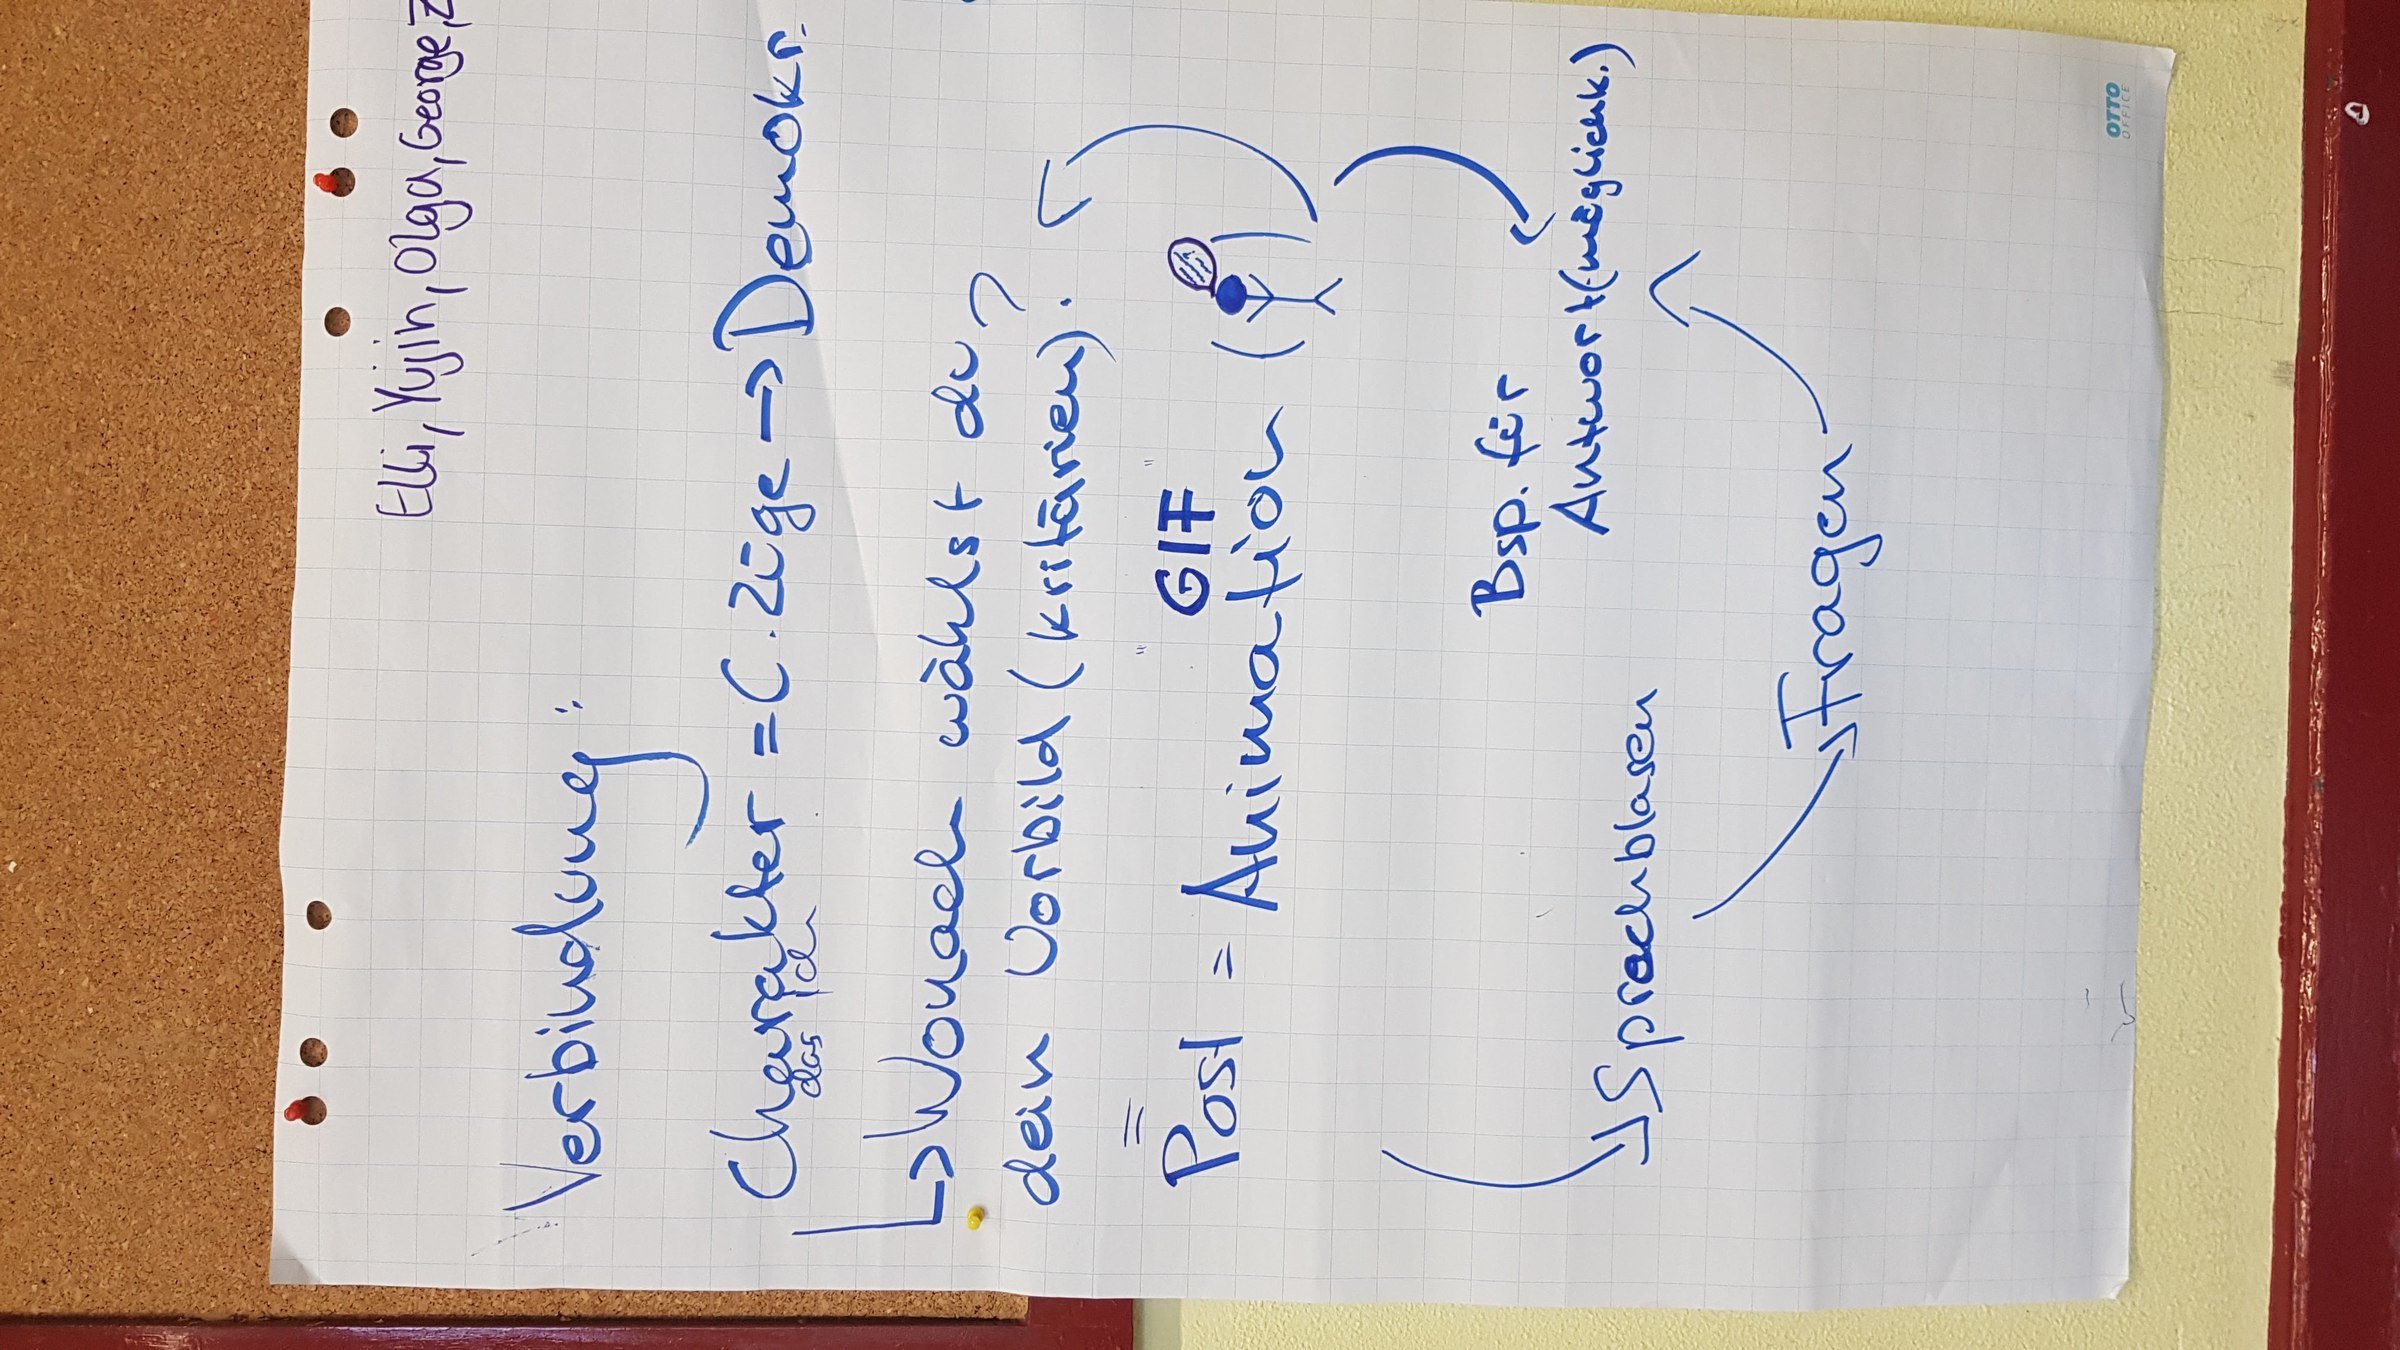 Elli, Yujin, Olga, George, Z
Verbindung:
Charakter = C. züge → Demokr.
das
↳ Wonach wählst du
dein Vorbild (kritärien).?
"GIF"
Post = Animation (
Bsp. für
Antwort (möglichk.)
Sprachblasen
Fragen
OTTO
OFFICE